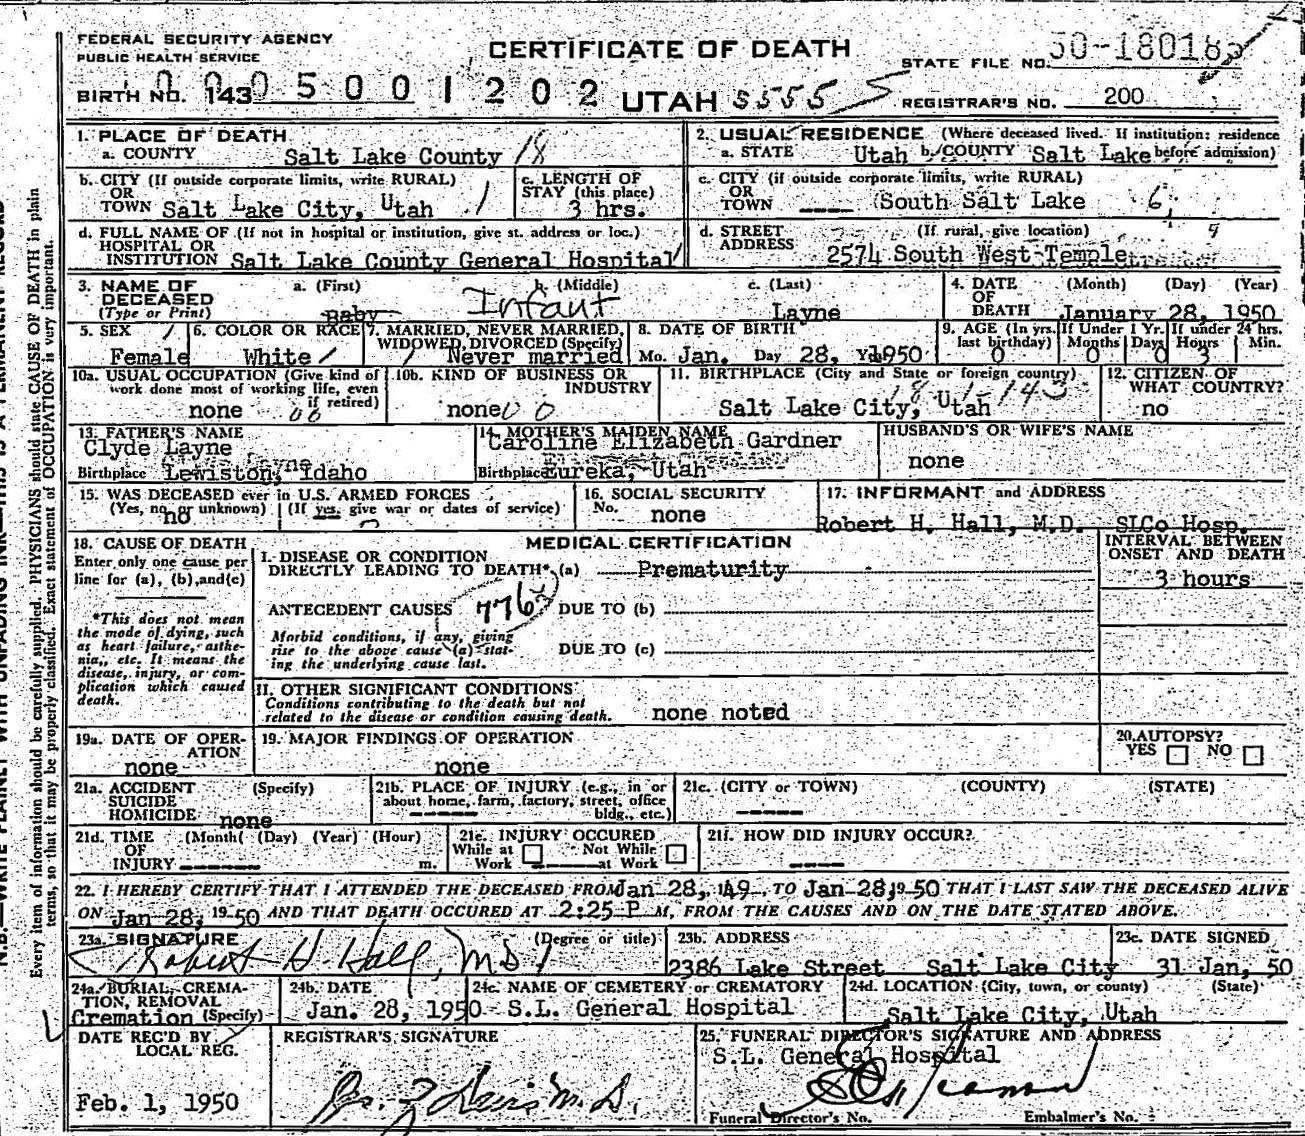 FEDERAL SECURITY AGENCY
PUBLIC HEALTH SERVICE
CERTIFICATE OF DEATH
STATE FILE NO. 50-180183
BIRTH NO. 143 0005001202 UTAH 5555
REGISTRAR'S NO. 200
1. PLACE OF DEATH
a. COUNTY Salt Lake County 18
2. USUAL RESIDENCE (Where deceased lived. If institution: residence before admission)
a. STATE Utah b. COUNTY Salt Lake
b. CITY (If outside corporate limits, write RURAL)
OR
TOWN Salt Lake City, Utah 1
c. LENGTH OF
STAY (this place)
3 hrs.
c. CITY (if outside corporate limits, write RURAL)
OR
TOWN ---- South Salt Lake 6
d. FULL NAME OF (If not in hospital or institution, give st. address or loc.)
HOSPITAL OR
INSTITUTION Salt Lake County General Hospital
d. STREET (If rural, give location) 9
ADDRESS 2574 South West Temple
3. NAME OF
DECEASED
(Type or Print)
a. (First) b. (Middle) c. (Last)
Baby Infant Layne
4. DATE OF DEATH (Month) (Day) (Year)
January 28, 1950
5. SEX
Female
6. COLOR OR RACE
White
7. MARRIED, NEVER MARRIED,
WIDOWED, DIVORCED (Specify)
Never married
8. DATE OF BIRTH
Mo. Jan. Day 28, Yr. 1950
9. AGE (In yrs. last birthday) If Under 1 Yr. Months Days If under 24 hrs. Hours Min.
0 0 0 3
10a. USUAL OCCUPATION (Give kind of
work done most of working life, even
if retired)
none 00
10b. KIND OF BUSINESS OR
INDUSTRY
none 00
11. BIRTHPLACE (City and State or foreign country)
18 1-143
Salt Lake City, Utah
12. CITIZEN OF
WHAT COUNTRY?
no
13. FATHER'S NAME
Clyde Layne
Birthplace Lewiston, Idaho
14. MOTHER'S MAIDEN NAME
Caroline Elizabeth Gardner
Birthplace Eureka, Utah
HUSBAND'S OR WIFE'S NAME
none
15. WAS DECEASED ever in U.S. ARMED FORCES
(Yes, no or unknown) (If yes, give war or dates of service)
no
16. SOCIAL SECURITY
No. none
17. INFORMANT and ADDRESS
Robert H. Hall, M.D. SLCo Hosp.
18. CAUSE OF DEATH
Enter only one cause per
line for (a), (b), and (c)
*This does not mean
the mode of dying, such
as heart failure, asthe-
nia, etc. It means the
disease, injury, or com-
plication which caused
death.
MEDICAL CERTIFICATION
I. DISEASE OR CONDITION
DIRECTLY LEADING TO DEATH* (a) Prematurity
ANTECEDENT CAUSES 776 DUE TO (b)
Morbid conditions, if any, giving
rise to the above cause (a) stat-
ing the underlying cause last.
DUE TO (c)
INTERVAL BETWEEN
ONSET AND DEATH
3 hours
II. OTHER SIGNIFICANT CONDITIONS
Conditions contributing to the death but not
related to the disease or condition causing death. none noted
19a. DATE OF OPER-
ATION
none
19. MAJOR FINDINGS OF OPERATION
none
20. AUTOPSY?
YES NO
21a. ACCIDENT (Specify)
SUICIDE
HOMICIDE none
21b. PLACE OF INJURY (e.g., in or
about home, farm, factory, street, office
bldg., etc.)
-----
21c. (CITY or TOWN) (COUNTY) (STATE)
-----
21d. TIME (Month) (Day) (Year) (Hour)
OF
INJURY ------ m.
21e. INJURY OCCURED
While at Work Not While at Work
21f. HOW DID INJURY OCCUR?
----
22. I HEREBY CERTIFY THAT I ATTENDED THE DECEASED FROM Jan 28, 149, TO Jan 28, 19 50 THAT I LAST SAW THE DECEASED ALIVE
ON Jan 28, 19 50 AND THAT DEATH OCCURED AT 2:25 P M, FROM THE CAUSES AND ON THE DATE STATED ABOVE.
23a. SIGNATURE (Degree or title)
Robert H. Hall, MD
23b. ADDRESS
2386 Lake Street Salt Lake City
23c. DATE SIGNED
31 Jan, 50
24a. BURIAL, CREMA-
TION, REMOVAL
Cremation (Specify)
24b. DATE
Jan. 28, 1950
24c. NAME OF CEMETERY or CREMATORY
S.L. General Hospital
24d. LOCATION (City, town, or county) (State)
Salt Lake City, Utah
DATE REC'D BY
LOCAL REG.
Feb. 1, 1950
REGISTRAR'S SIGNATURE
M.D.
25. FUNERAL DIRECTOR'S SIGNATURE AND ADDRESS
S.L. General Hospital
Funeral Director's No. Embalmer's No.
Every item of information should be carefully supplied. PHYSICIANS should state CAUSE OF DEATH in plain
terms, so that it may be properly classified. Exact statement of OCCUPATION is very important.